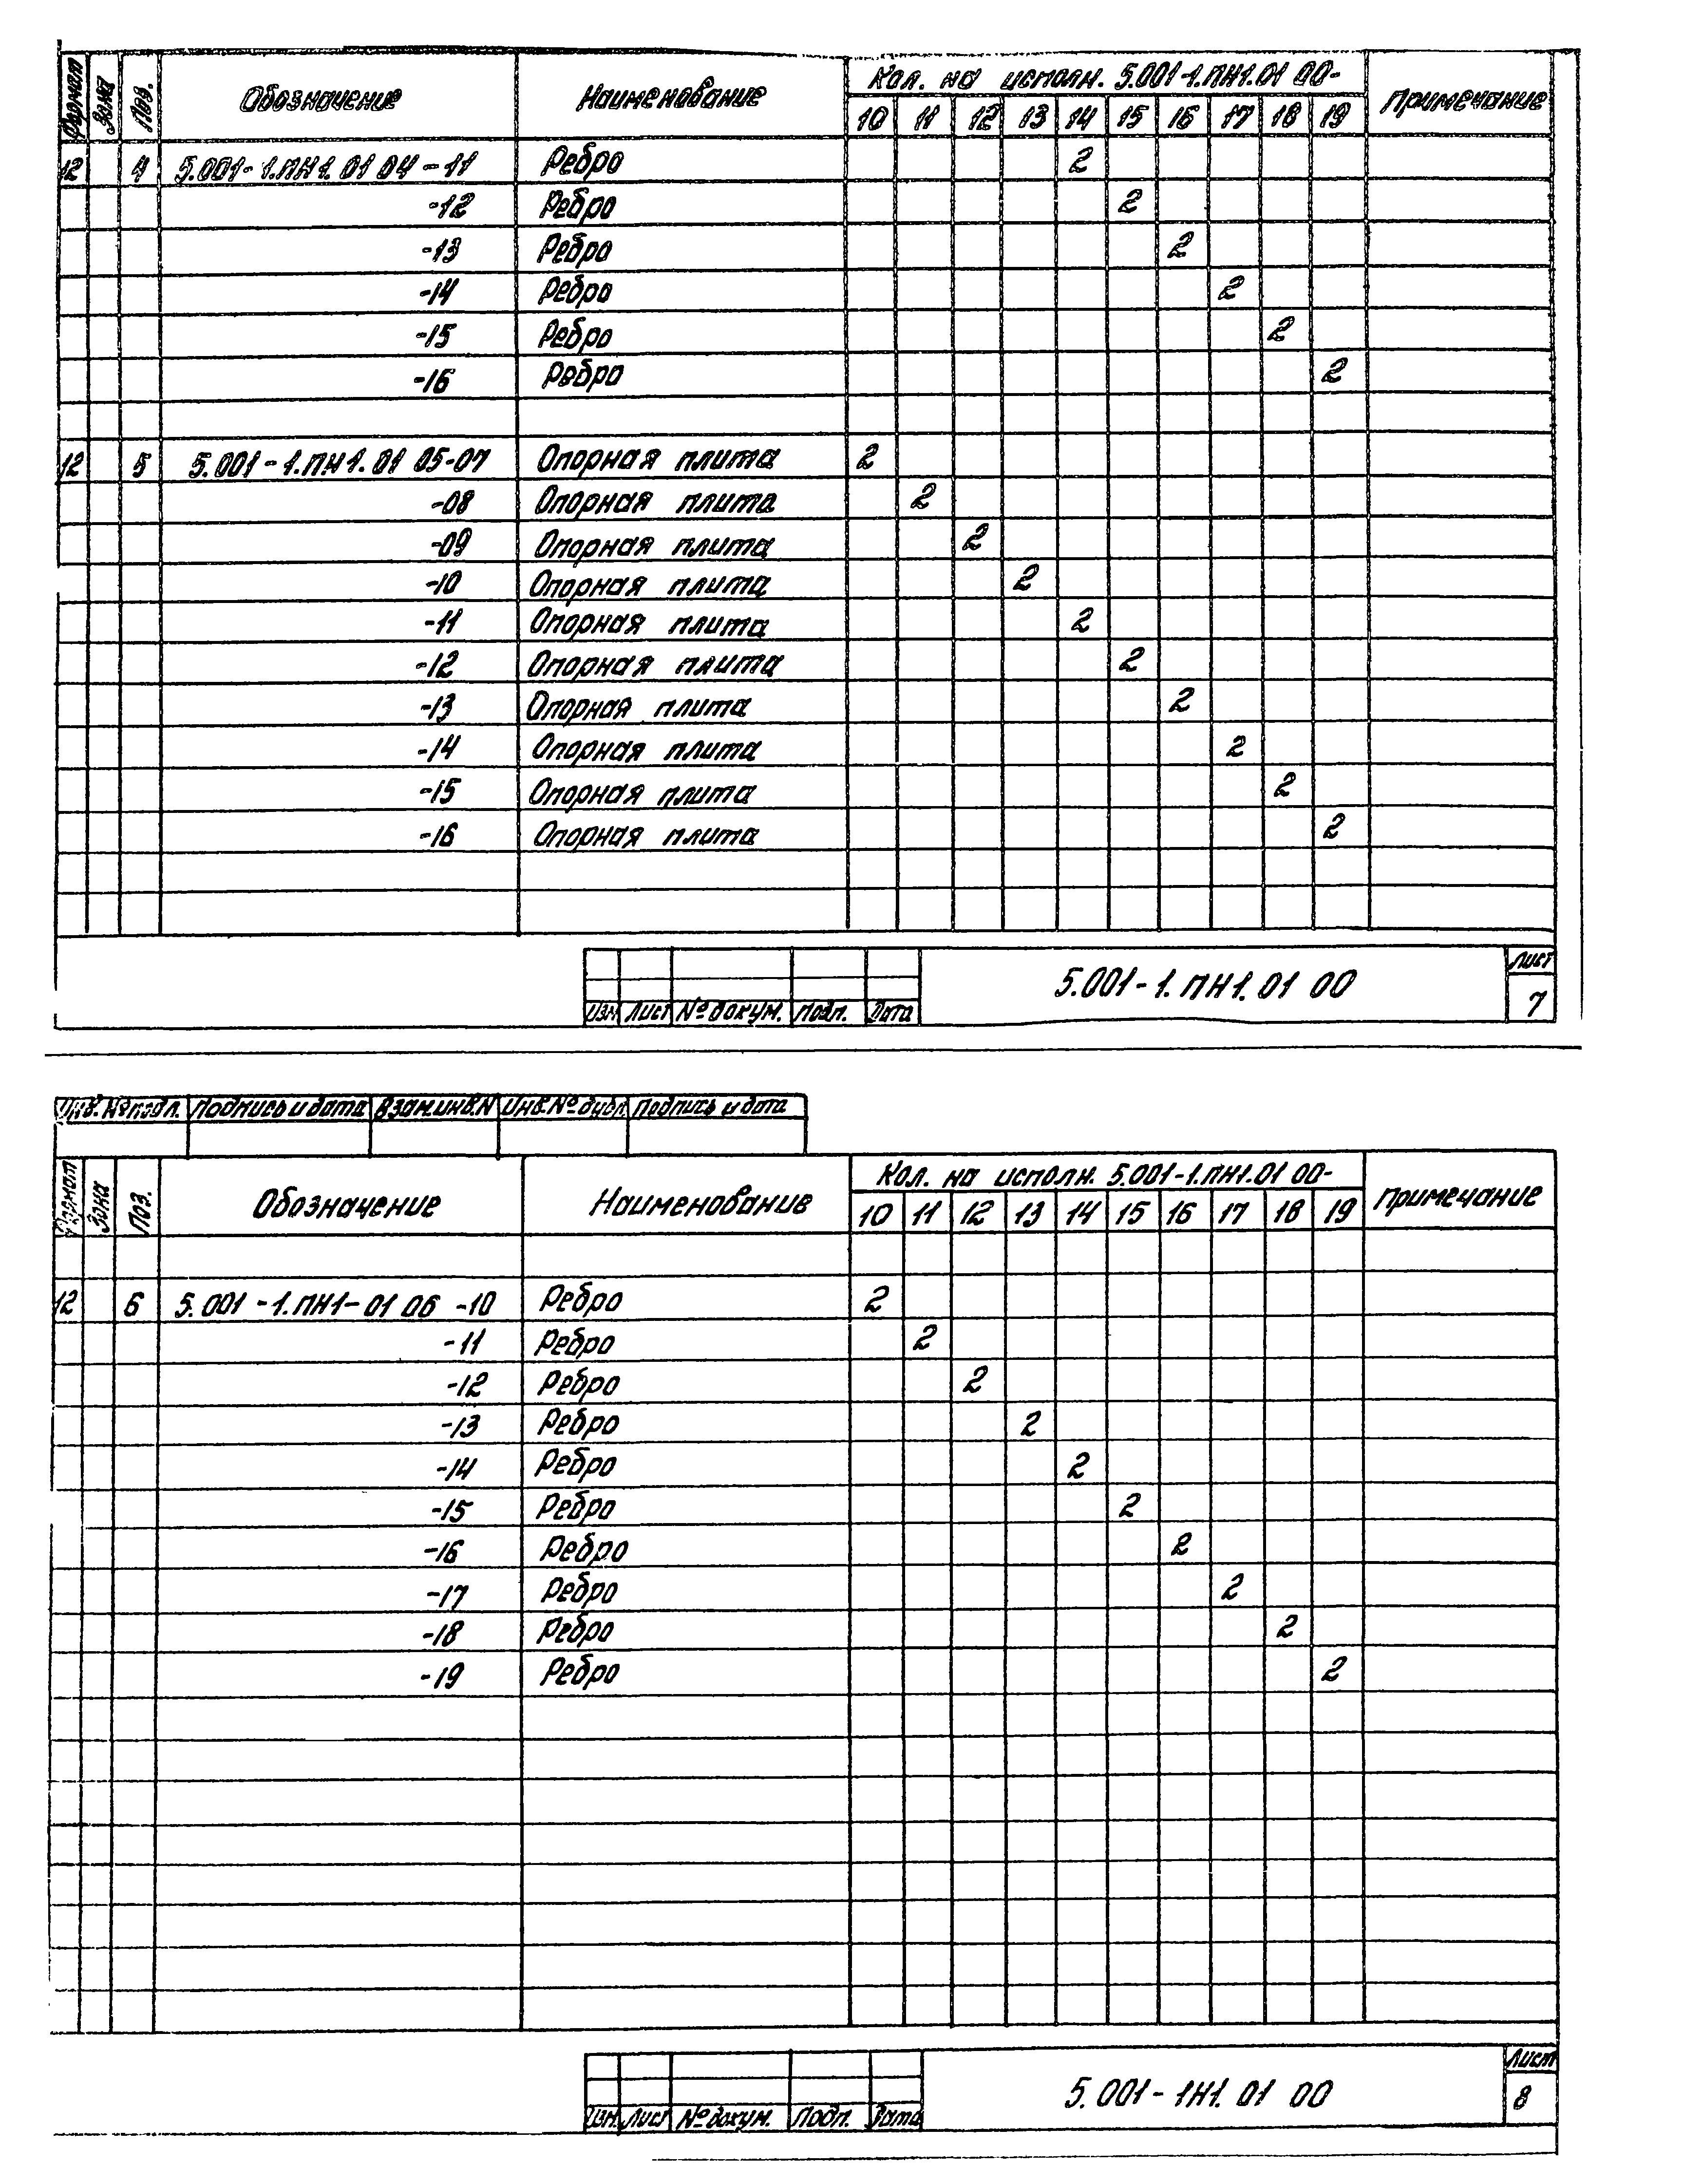 Формат Зона Поз. Обозначение Наименование Кол. на исполн. 5.001-1.ПН1.01 00- Примечание
10 11 12 13 14 15 16 17 18 19
12 4 5.001-1.ПН1.01 04-11 Ребро 2
-12 Ребро 2
-13 Ребро 2
-14 Ребро 2
-15 Ребро 2
-16 Ребро 2
12 5 5.001-1.ПН1.01 05-07 Опорная плита 2
-08 Опорная плита 2
-09 Опорная плита 2
-10 Опорная плита 2
-11 Опорная плита 2
-12 Опорная плита 2
-13 Опорная плита 2
-14 Опорная плита 2
-15 Опорная плита 2
-16 Опорная плита 2
5.001-1.ПН1.01 00 Лист
7
Изм Лист № докум. Подп. Дата
Инв. № подл. Подпись и дата Взам.инв.N Инв.№ дубл. Подпись и дата
Формат Зона Поз. Обозначение Наименование Кол. на исполн. 5.001-1.ПН1.01 00- Примечание
10 11 12 13 14 15 16 17 18 19
12 6 5.001-1.ПН1-01 06 -10 Ребро 2
-11 Ребро 2
-12 Ребро 2
-13 Ребро 2
-14 Ребро 2
-15 Ребро 2
-16 Ребро 2
-17 Ребро 2
-18 Ребро 2
-19 Ребро 2
5.001-1Н1.01 00 Лист
8
Изм. Лист № докум. Подп. Дата